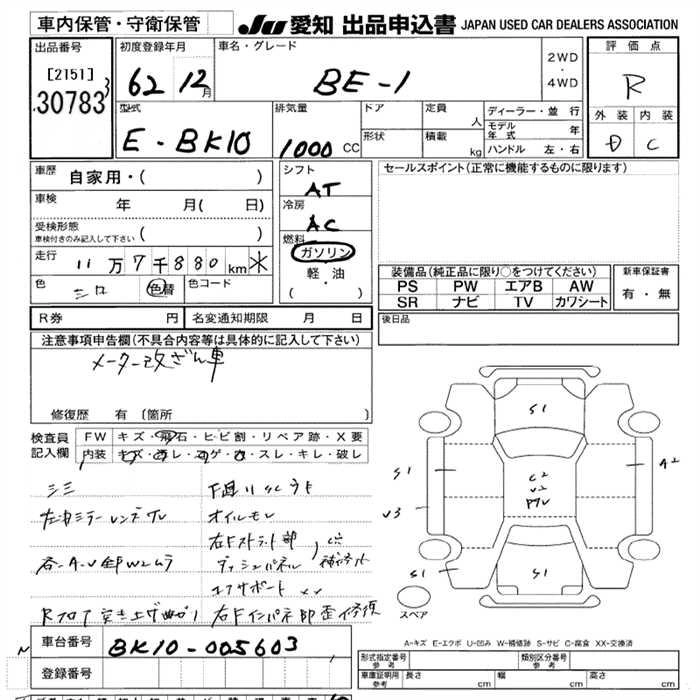 車内保管・守衛保管
JU 愛知 出品申込書 JAPAN USED CAR DEALERS ASSOCIATION
出品番号
[2151]
30783
初度登録年月
62 12月
車名・グレード
BE-1
2WD
・
4WD
評価点
R
外装 内装
D C
型式
E-BK10
排気量
1000 CC
ドア
形状
定員 人
積載 kg
ディーラー・並行
モデル年式 年
ハンドル 左・右
車歴 自家用・( )
車検 年 月( 日)
受検形態
車検付きのみ記入して下さい ( )
走行 11万7千880km ※
色 シロ 色替 色コード
シフト
AT
冷房
AC
燃料
ガソリン
軽・油
( )
セールスポイント(正常に機能するものに限ります)
装備品(純正品に限り○をつけてください)
PS PW エアB AW
SR ナビ TV カワシート
新車保証書
有・無
R券 円 名変通知期限 月 日
後日品
注意事項申告欄(不具合内容等は具体的に記入して下さい)
メーター改ざん車
修復歴 有 〔箇所 〕
検査員記入欄
FW キズ・飛石・ヒビ割・リペア跡・X要
内装 キズ・汚レ・コゲ・穴・スレ・キレ・破レ
シミ
左右ミラーレンズワレ
各A-U全部W2ムラ
下廻りSCサビ
オイルモレ
右Fストラット部
ダッシュパネル
コアサポート XX
右Fインパネ部歪修復
S1
S1
A2
C2
W2
U3
S1
S1
スペア
A-キズ E-エクボ U-凹み W-補修跡 S-サビ C-腐食 XX-交換済
車台番号 BK10-005603
登録番号
形式指定番号 参考
類別区分番号 参考
車庫証明用 参考 長さ cm 幅 cm 高さ cm